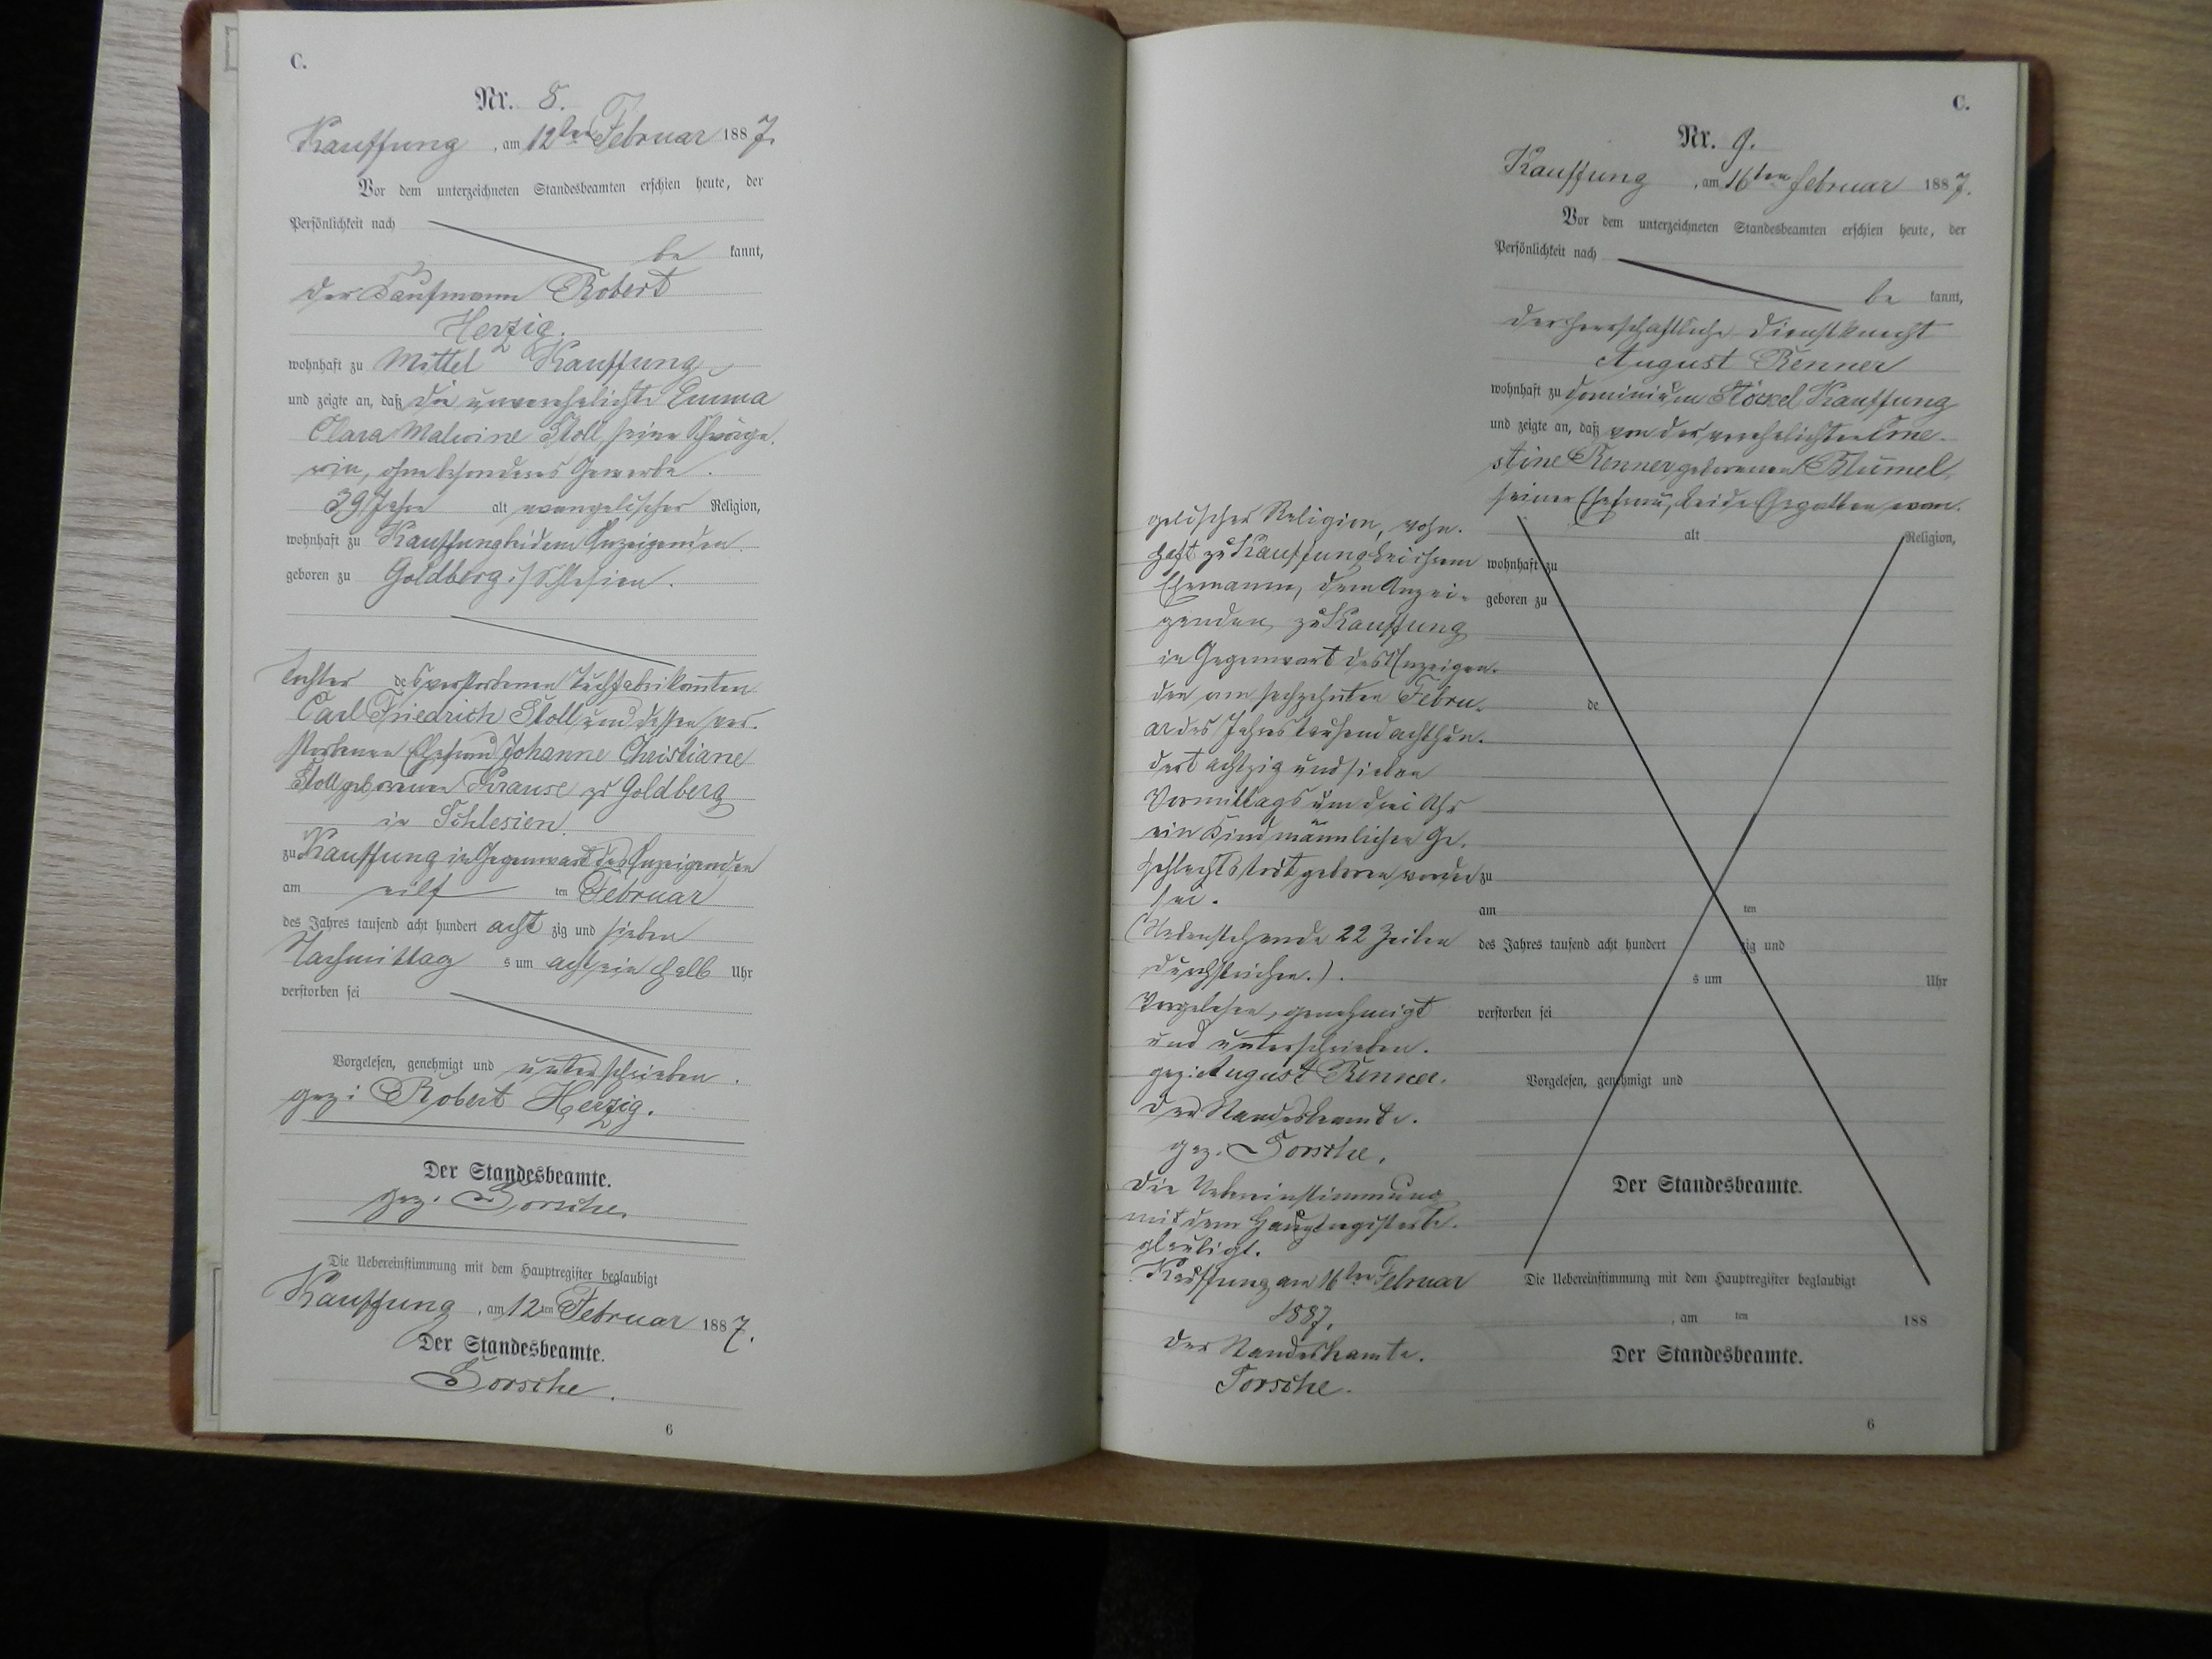 C.
Nr. 8.
Kauffung, am 12ten Februar 1887.
Vor dem unterzeichneten Standesbeamten erschien heute, der
Persönlichkeit nach
be kannt,
der Kaufmann Robert
Herzig.
wohnhaft zu Mittel Kauffung
und zeigte an, daß die unverehelichte Emma
Clara Malwine Stoll, seine Schwäge-
rin, ohne besonderes Gewerbe.
39 Jahre alt evangelischer Religion,
wohnhaft zu Kauffung bei dem Anzeigenden
geboren zu Goldberg i/ Schlesien.
Tochter des verstorbenen Tuchfabrikanten
Carl Friedrich Stoll und dessen ver-
storbenen Ehefrau Johanne Christiane
Stoll geborenen Krause zu Goldberg
in Schlesien.
zu Kauffung in Gegenwart des Anzeigenden
am eilf ten Februar
des Jahres tausend acht hundert acht zig und sieben
Nachmittag s um acht ein halb Uhr
verstorben sei
Vorgelesen, genehmigt und unterschrieben.
gez: Robert Herzig.
Der Standesbeamte.
gez. Torsche.
Die Uebereinstimmung mit dem Hauptregister beglaubigt
Kauffung, am 12ten Februar 1887.
Der Standesbeamte.
Torsche.
6
C.
Nr. 9.
Kauffung, am 16ten Februar 1887.
Vor dem unterzeichneten Standesbeamten erschien heute, der
Persönlichkeit nach
be kannt,
der herrschaftliche Dienstknecht
August Renner
wohnhaft zu Dominium Stöckel Kauffung
und zeigte an, daß von der verehelichten Erne-
stine Renner geborenen Blümel,
seiner Ehefrau, beide Ehegatten evan-
gelischer Religion, wohn-
haft zu Kauffung bei ihrem
Ehemann, dem Anzei-
genden, zu Kauffung
in Gegenwart des Anzeigen-
den am sechzehnten Febru-
ar des Jahres tausend achthun-
dert achtzig und sieben
Vormittags um drei Uhr
ein Kind männlichen Ge-
schlechts todt geboren worden
sei.
(Nebenstehende 22 Zeilen
durchstrichen.).
Vorgelesen, genehmigt
und unterschrieben.
gez: August Renner.
Der Standesbeamte.
gez. Torsche.
Die Uebereinstimmung
mit dem Hauptregister be-
glaubigt.
Kauffung am 16ten Februar
1887.
Der Standesbeamte.
Torsche.
alt Religion,
wohnhaft zu
geboren zu
de
zu
am ten
des Jahres tausend acht hundert zig und
s um Uhr
verstorben sei
Vorgelesen, genehmigt und
Der Standesbeamte.
Die Uebereinstimmung mit dem Hauptregister beglaubigt
, am ten 188
Der Standesbeamte.
6